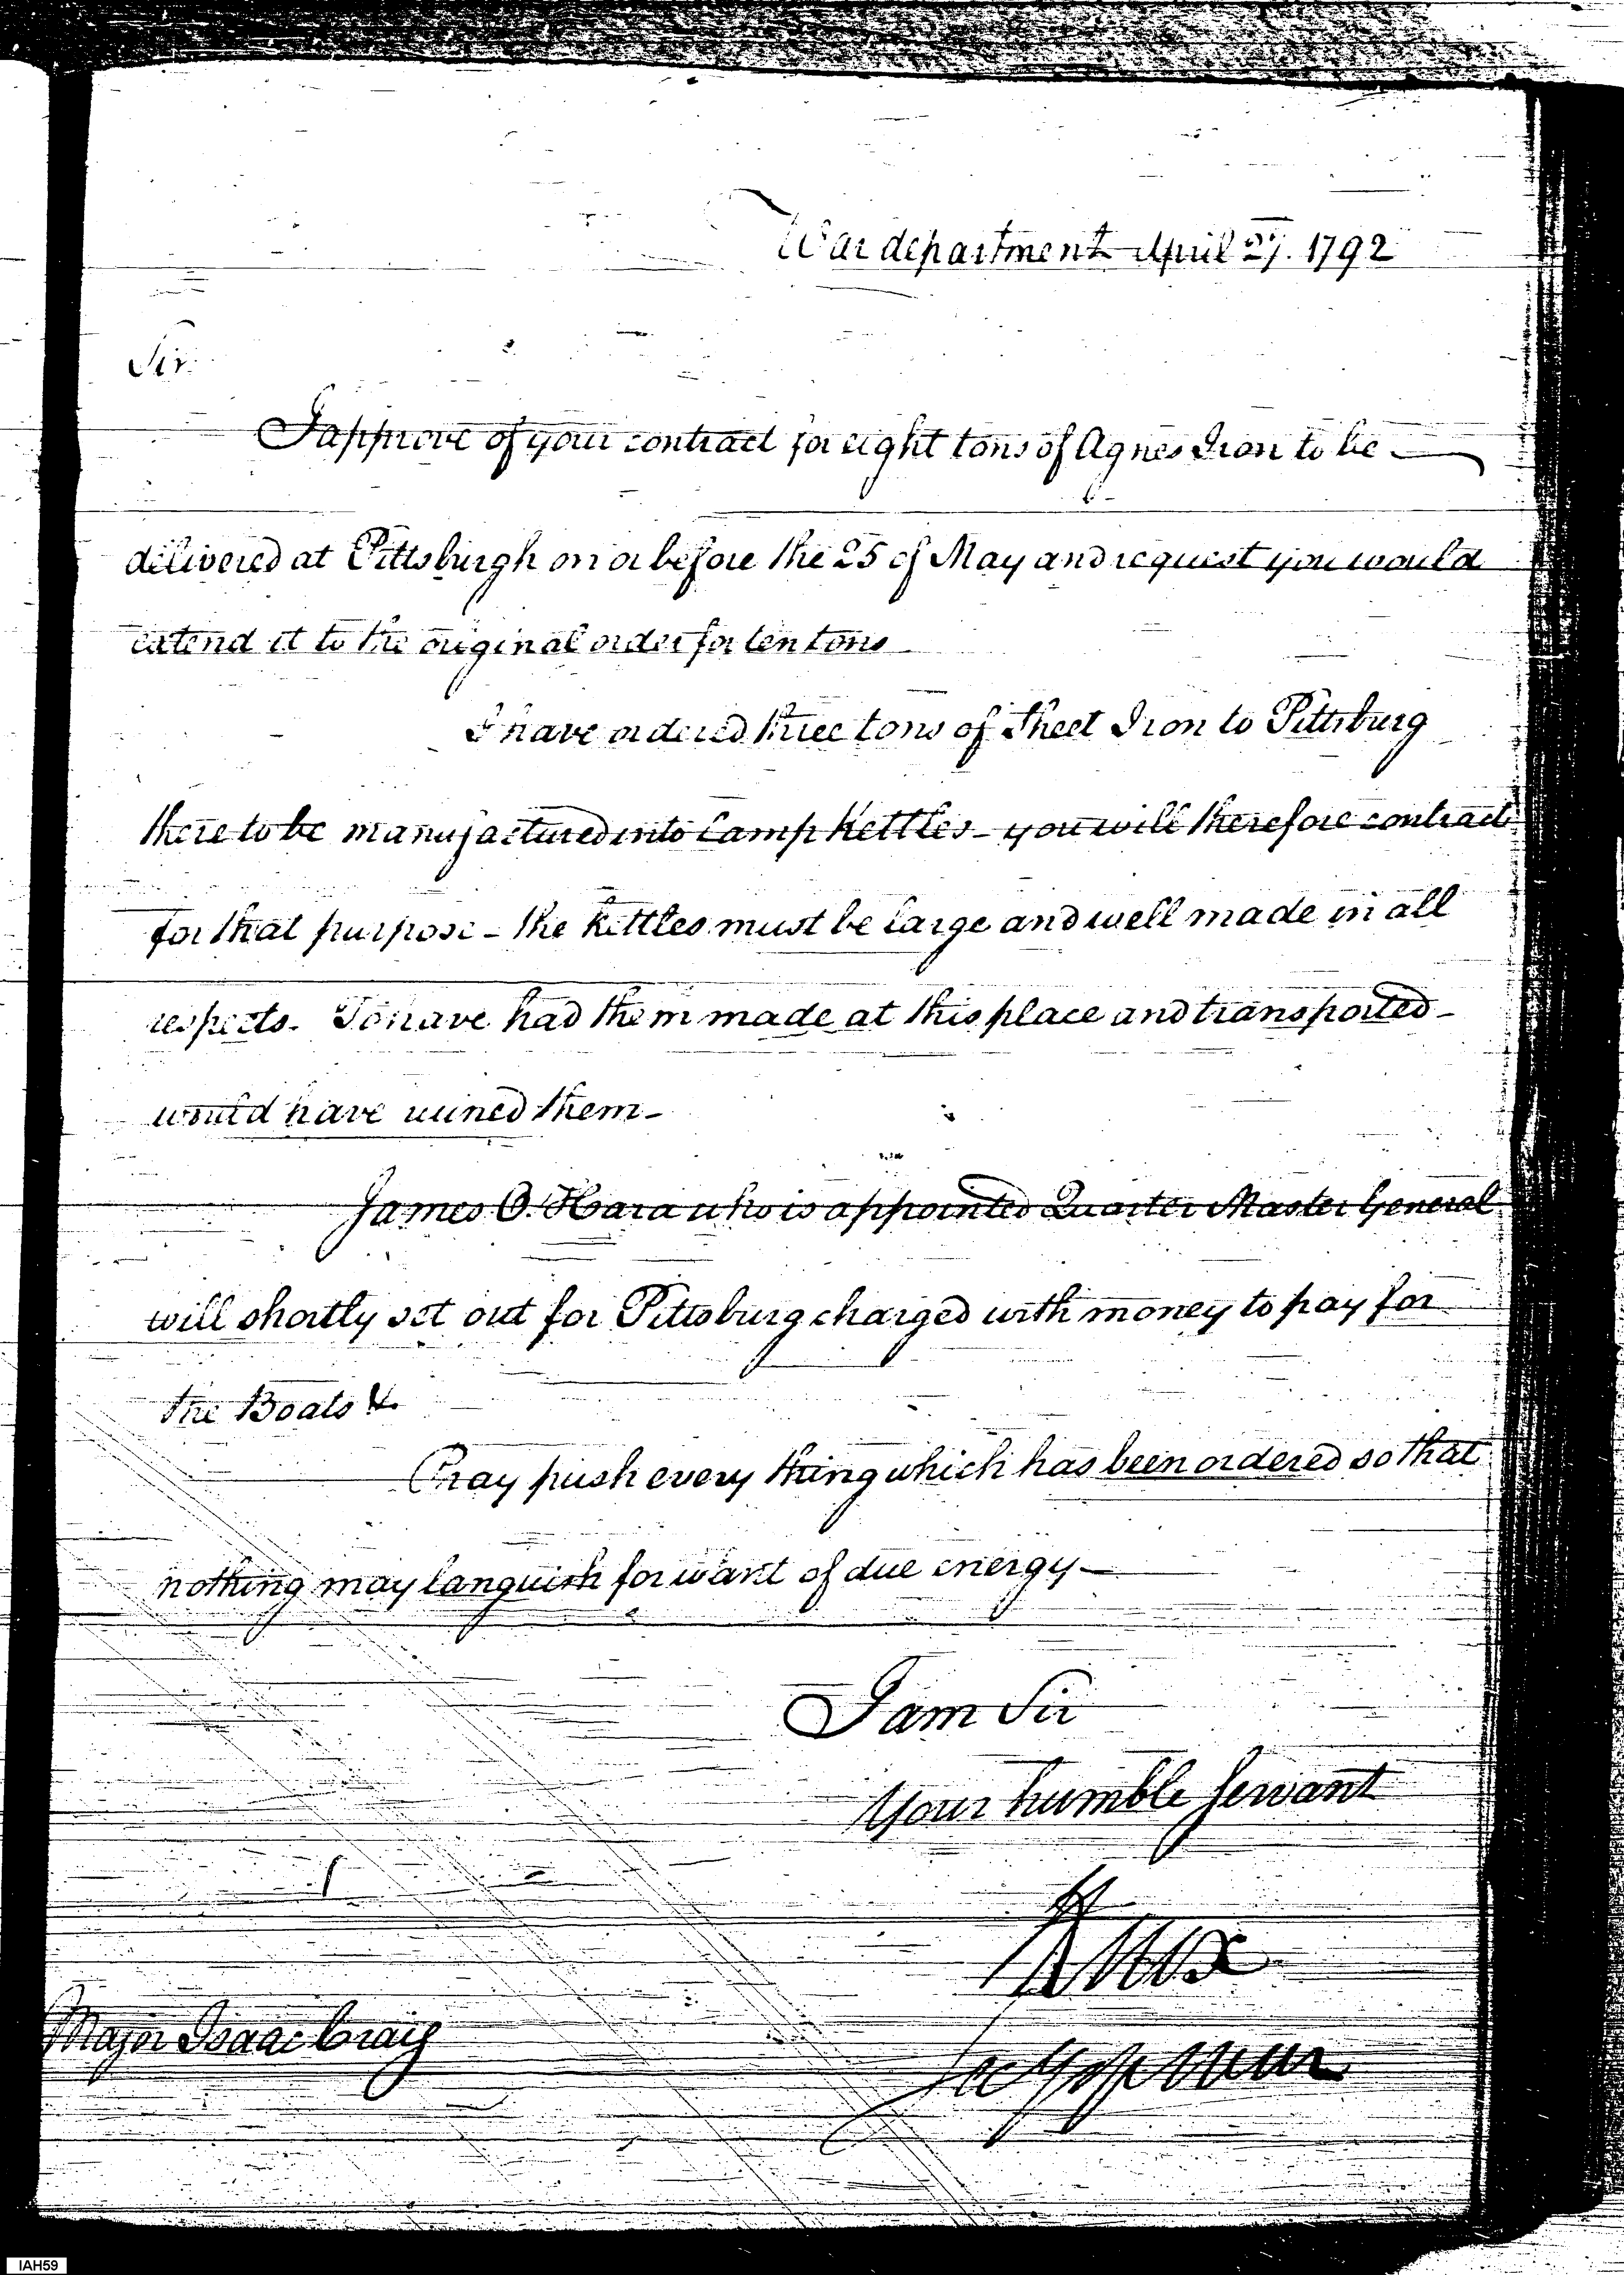 War department April 27. 1792
Sir.
I approve of your contract for eight tons of Agnes Iron to be
delivered at Pittsburgh on or before the 25 of May and request you would
extend it to the original order for ten tons
I have ordered three tons of Sheet Iron to Pittsburg
there to be manufactured into Camp Kettles - you will therefore contract
for that purpose - the kettles must be large and well made in all
respects. To have had them made at this place and transported -
would have ruined them -
James O. Hara who is appointed Quarter Master General
will shortly set out for Pittsburg charged with money to pay for
the Boats &.
Pray push every thing which has been ordered so that
nothing may languish for want of due energy -
I am Sir
Your humble Servant
H Knox
Secy of War
Major Isaac Craig
IAH59